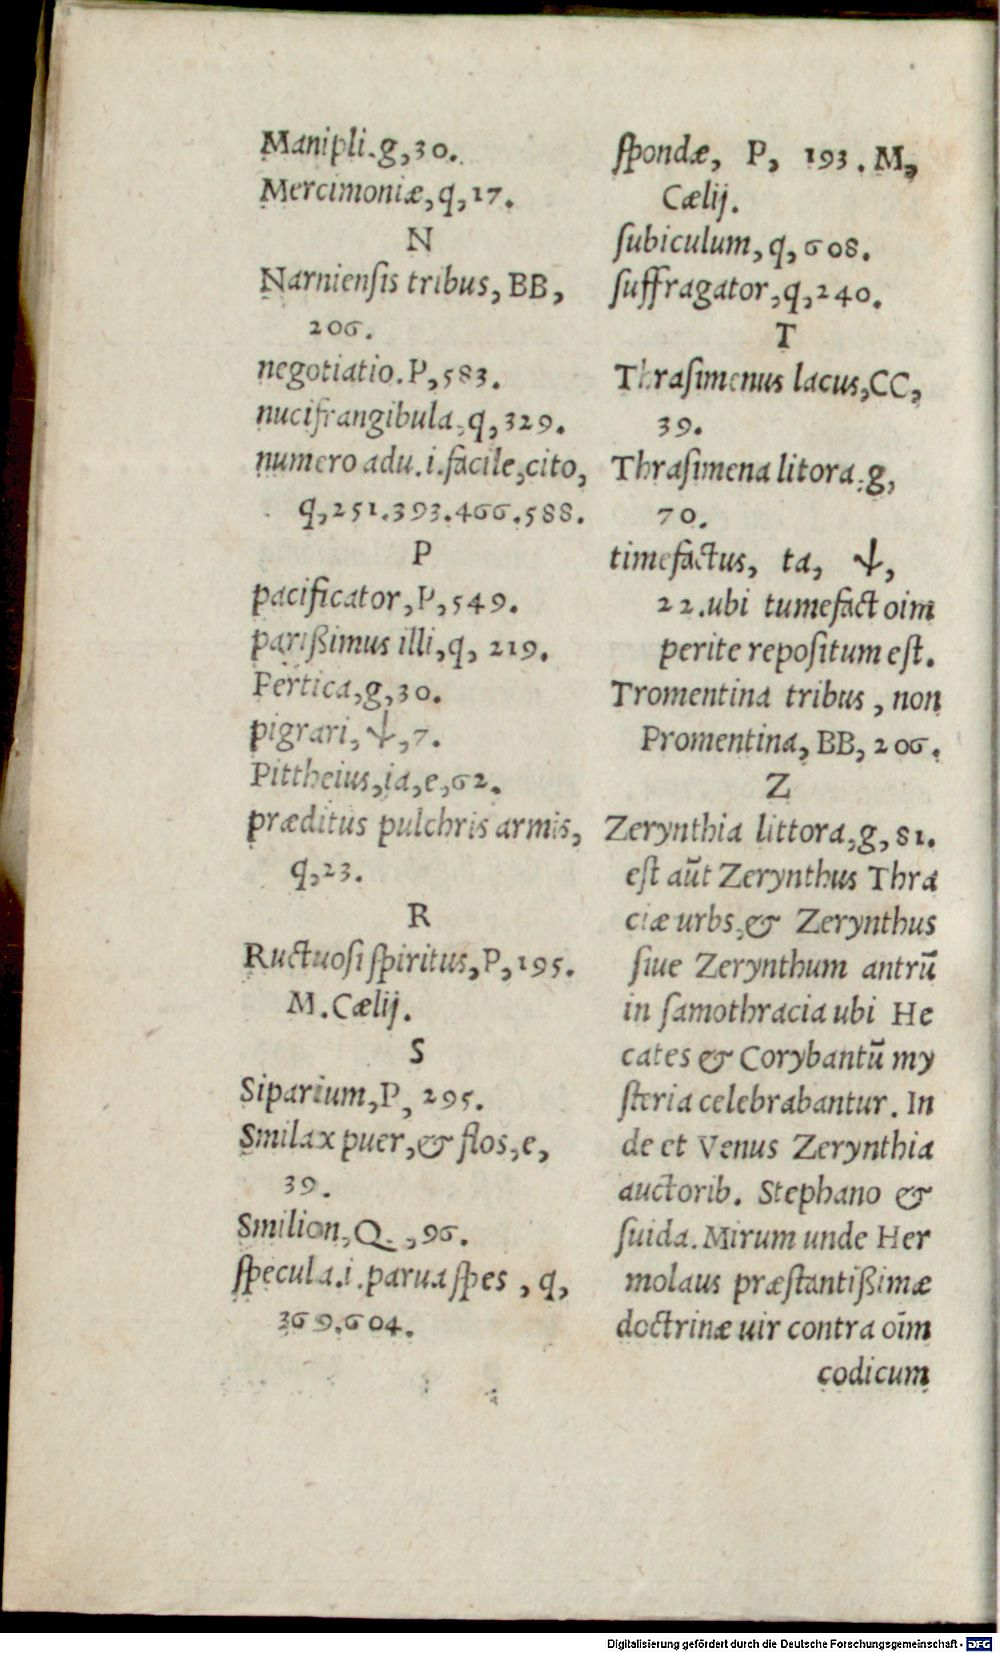 Manipli.g,30.
Mercimoniæ,q,17.
N
Narnienſis tribus, BB,
206.
negotiatio.P,583.
nucifrangibula,q,329.
numero adu.i.facile,cito,
q,251.393.466.588.
P
pacificator,P,549.
parißimus illi,q, 219.
Pertica,g,30.
pigrari,ψ,7.
Pittheius,ia,e,62.
præditus pulchris armis,
q,23.
R
Ructuoſi ſpiritus,P,195.
M.Cælij.
S
Siparium,P, 295.
Smilax puer,& flos,e,
39.
Smilion,Q.,96.
ſpecula.i.parua ſpes , q,
369.604.
ſpondæ, P, 193. M,
Cælij.
ſubiculum,q,608.
ſuffragator,q,240.
T
Thraſimenus lacus,CC,
39.
Thraſimena litora.g,
70.
timefactus, ta, ψ,
22.ubi tumefact oim
perite repoſitum eſt.
Tromentina tribus , non
Promentina, BB, 206.
Z
Zerynthia littora,g, 81.
eſt aũt Zerynthus Thra
ciæ urbs,& Zerynthus
ſiue Zerynthum antrũ
in ſamothracia ubi He
cates & Corybantũ my
ſteria celebrabantur. In
de et Venus Zerynthia
auctorib. Stephano &
ſuida.Mirum unde Her
molaus præſtantißimæ
doctrinæ uir contra oīm
codicum
Digitalisierung gefördert durch die Deutsche Forschungsgemeinschaft - DFG